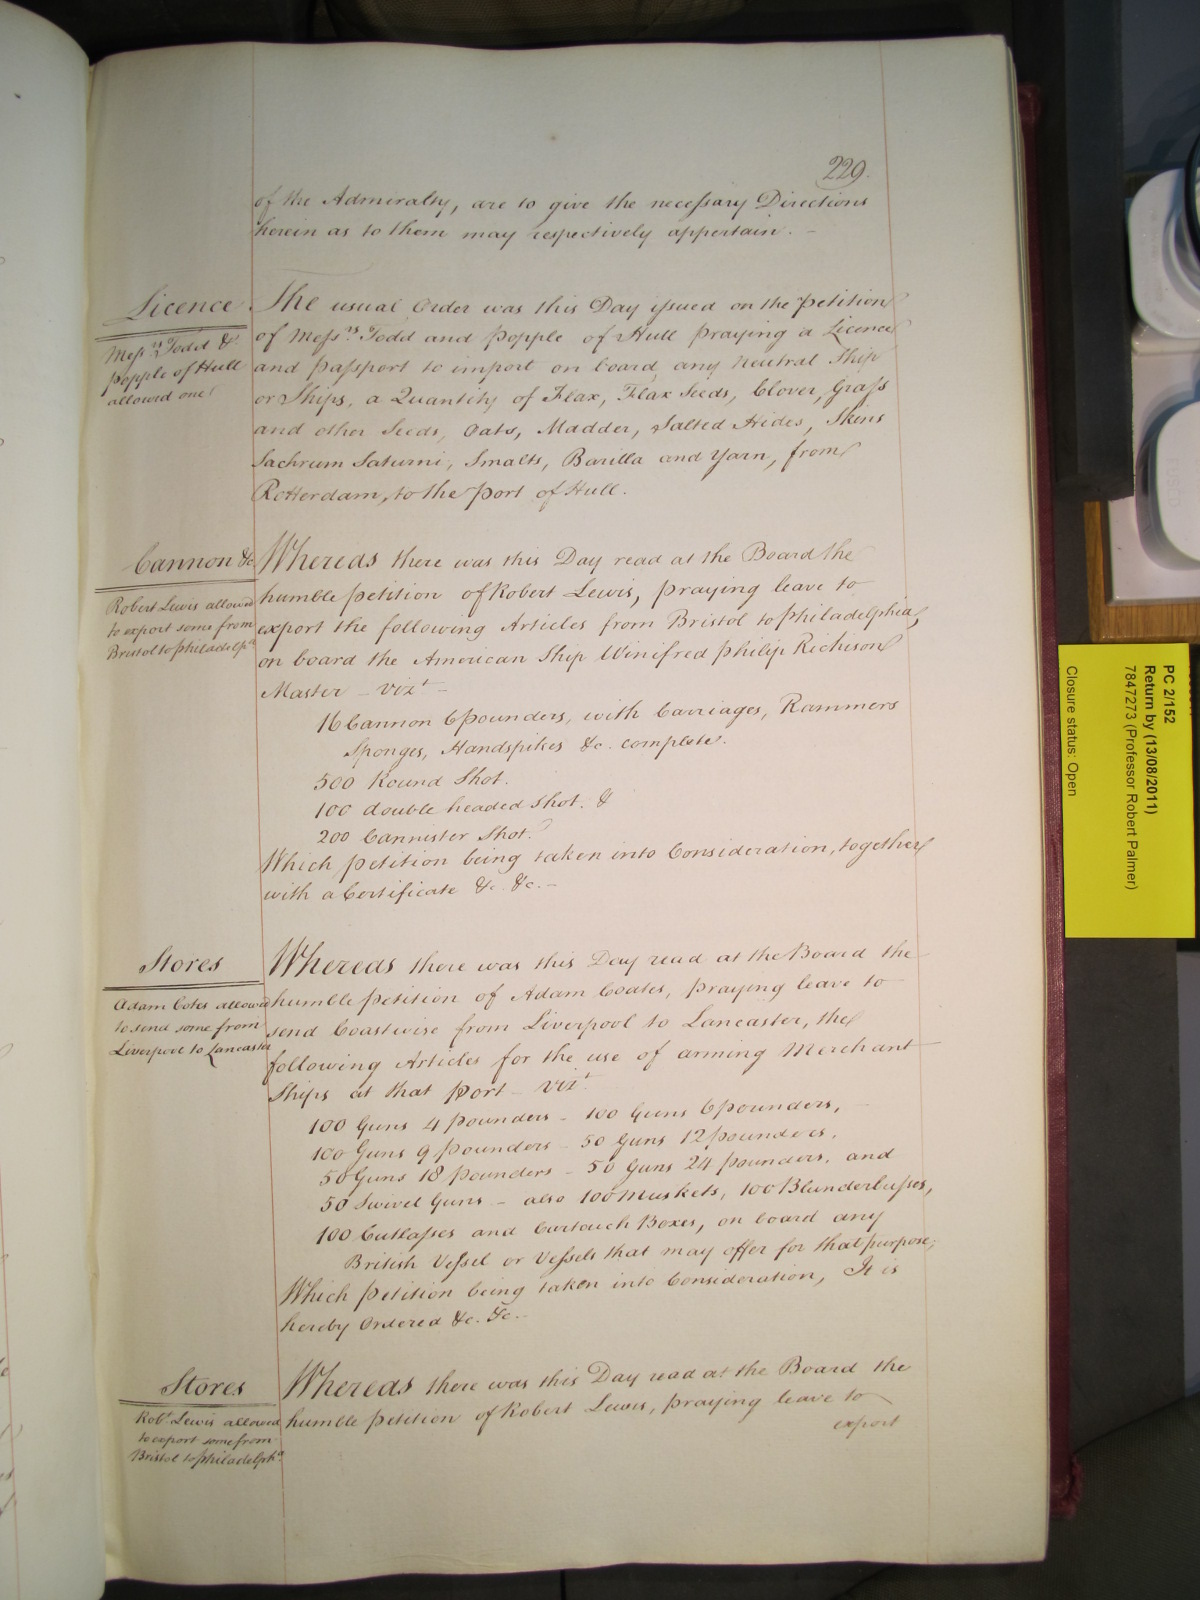 229.
of the Admiralty, are to give the necessary Directions
herein as to them may respectively appertain. -
Licence
Messrs. Todd &
Popple of Hull
allowed one
The usual Order was this Day issued on the Petition
of Messrs. Todd and Popple of Hull praying a Licence
and Passport to import on board any Neutral Ship
or Ships, a Quantity of Flax, Flax Seeds, Clover, Grass
and other Seeds, Oats, Madder, Salted Hides, Skins
Sachrum Saturni, Smalts, Barilla and Yarn, from
Rotterdam, to the Port of Hull.
Cannon &c
Robert Lewis allowed
to export some from
Bristol to Philadelpa
Whereas there was this Day read at the Board the
humble petition of Robert Lewis, praying leave to
export the following Articles from Bristol to Philadelphia,
on board the American Ship Winifred Philip Richison
Master - vizt -
16 Cannon 6 pounders, with Carriages, Rammers
Sponges, Handspikes &c. complete.
500 Round Shot.
100 double headed Shot. &
200 Cannister Shot.
Which petition being taken into Consideration, together
with a Certificate &c. &c. -
Stores
Adam Cotes allowed
to send some from
Liverpool to Lancaster
Whereas there was this Day read at the Board the
humble petition of Adam Coates, praying leave to
send Coastwise from Liverpool to Lancaster, the
following Articles for the use of arming Merchant
Ships at that Port - vizt
100 Guns 4 pounders - 100 Guns 6 pounders, -
100 Guns 9 pounders - 50 Guns 12 pounders,
50 Guns 18 pounders - 50 Guns 24 pounders, and
50 Swivel Guns - also 100 Muskets, 100 Blunderbusses,
100 Cutlasses and Cartouch Boxes, on board any
British Vessel or Vessels that may offer for that purpose;
Which petition being taken into Consideration, It is
hereby Ordered &c. &c. -
Stores
Robt. Lewis allowed
to export some from
Bristol to Philadelpha
Whereas there was this Day read at the Board the
humble petition of Robert Lewis, praying leave to
export
PC 2/152
Return by (13/08/2011)
7847273 (Professor Robert Palmer)
Closure status: Open